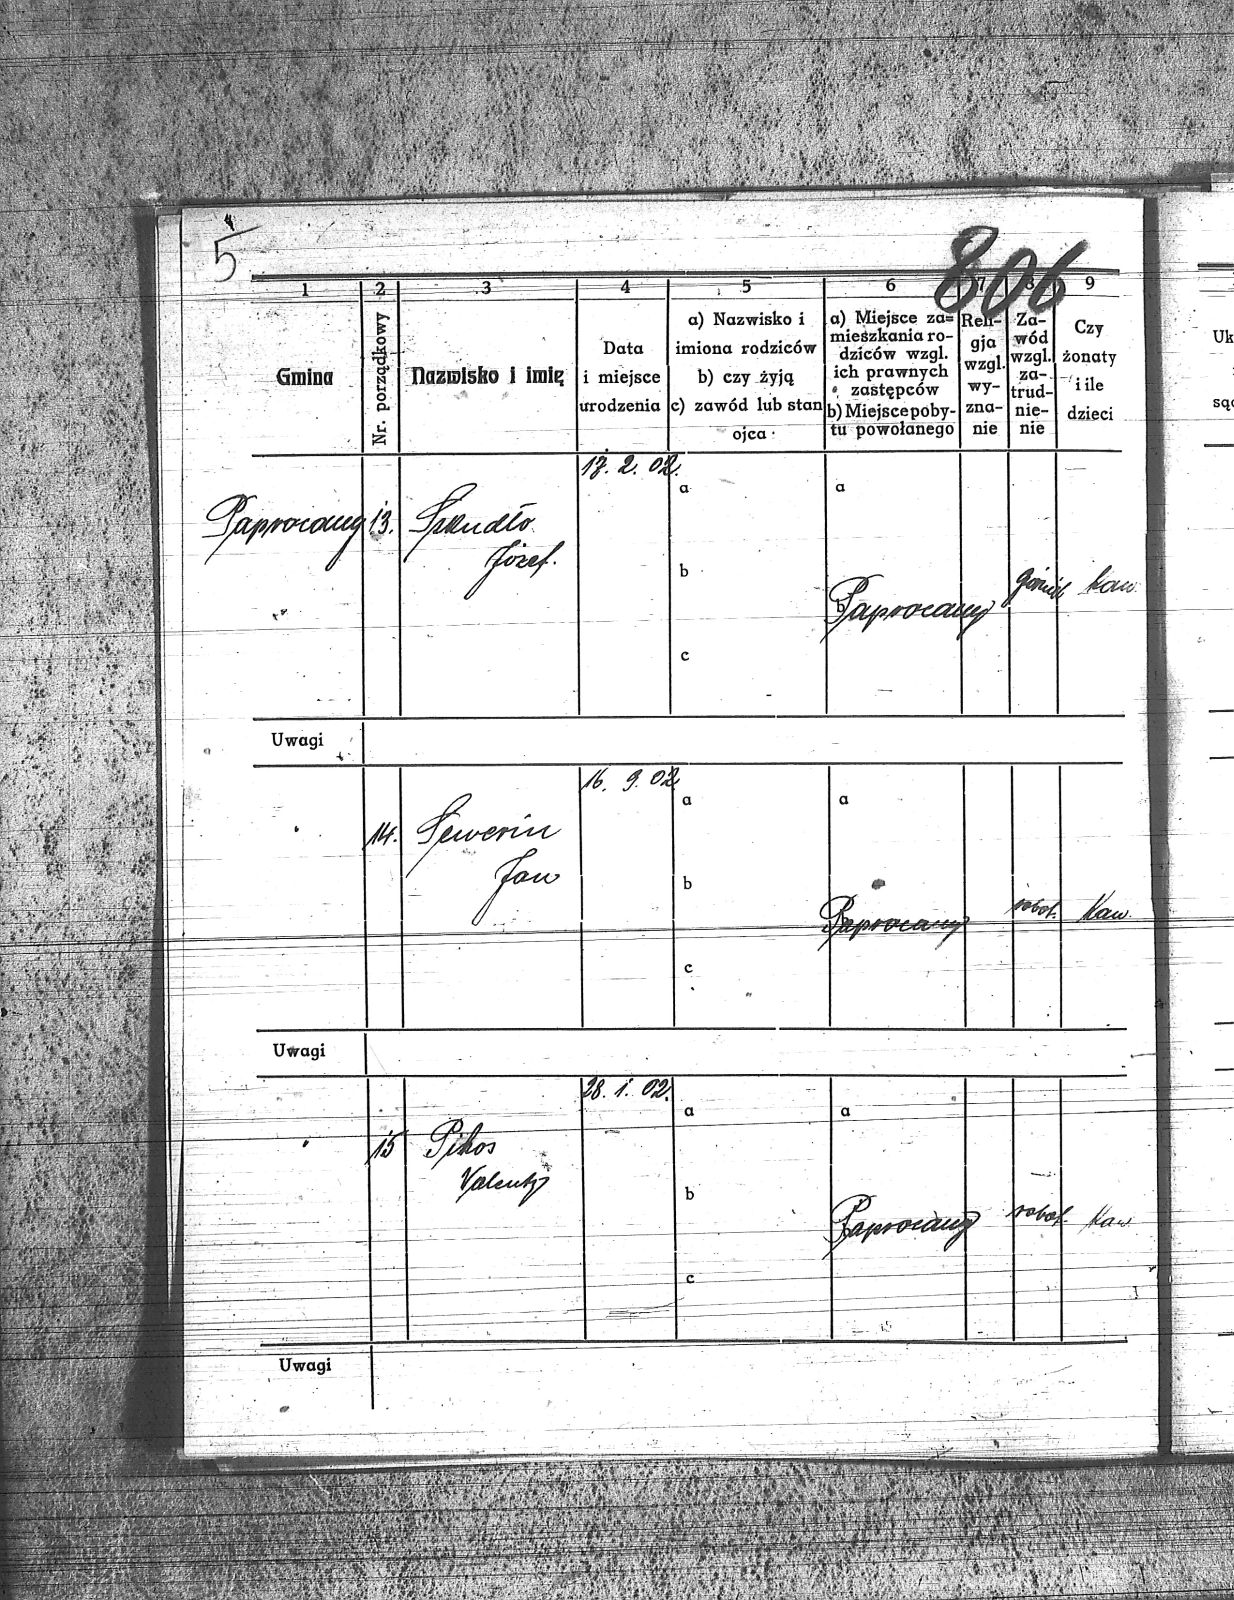 5
806
1 2 3 4 5 6 7 8 9
Gmina
Nr. porządkowy
Nazwisko i imię
Data
i miejsce
urodzenia
a) Nazwisko i
imiona rodziców
b) czy żyją
c) zawód lub stan
ojca
a) Miejsce za=
mieszkania ro-
dziców wzgl.
ich prawnych
zastępców
b) Miejsce poby-
tu powołanego
Reli-
gja
wzgl.
wy-
zna-
nie
Za-
wód
wzgl.
za-
trud-
nie-
nie
Czy
żonaty
i ile
dzieci
17. 2. 02.
a a
Paprocany 13. Szkudło
Józef.
b
b
Paprocany górnik kaw.
c
Uwagi
16. 9. 02
a a
14. Sewerin
Jan
b
Paprocany robot. Kaw.
c
Uwagi
28. 1. 02.
a a
15 Pikos
Valenty
b
Paprocany robot. Kaw
c
Uwagi
Uk